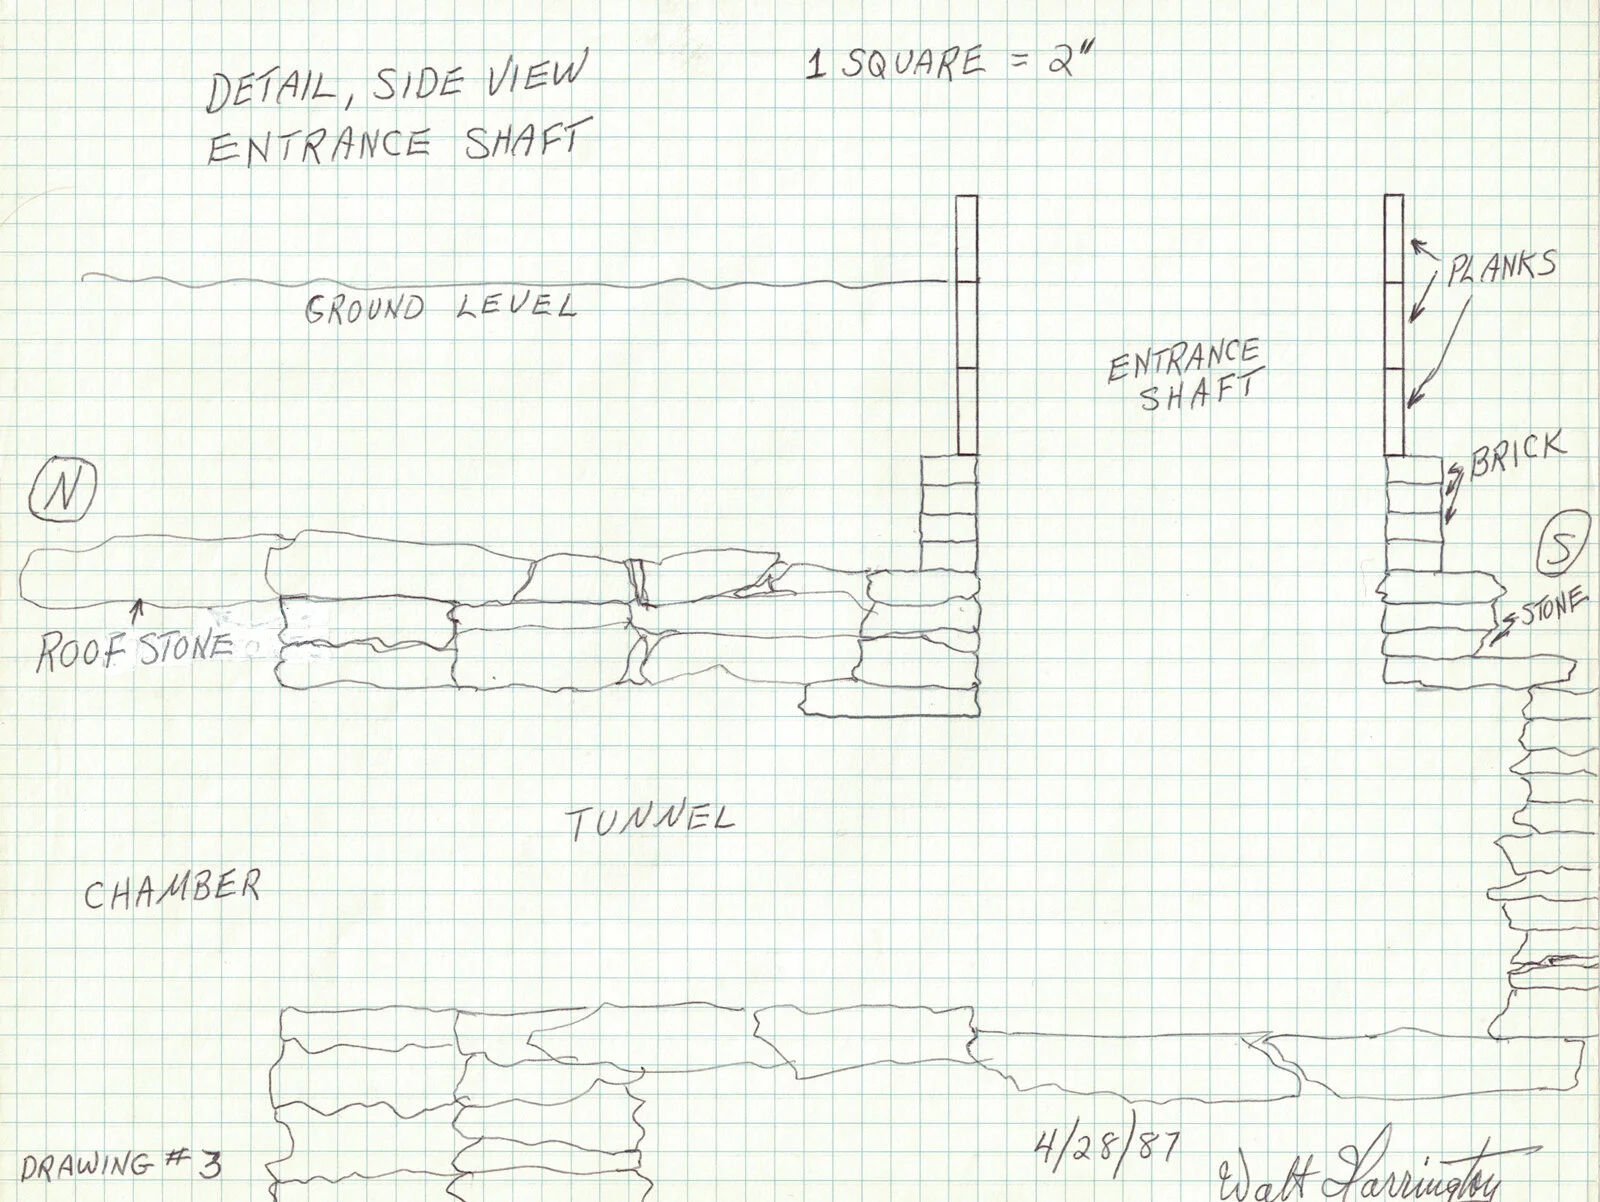 DETAIL, SIDE VIEW
ENTRANCE SHAFT
1 SQUARE = 2"
GROUND LEVEL
PLANKS
ENTRANCE
SHAFT
BRICK
N
S
STONE
ROOF STONE
TUNNEL
CHAMBER
4/28/87
DRAWING # 3
Walt Harrington